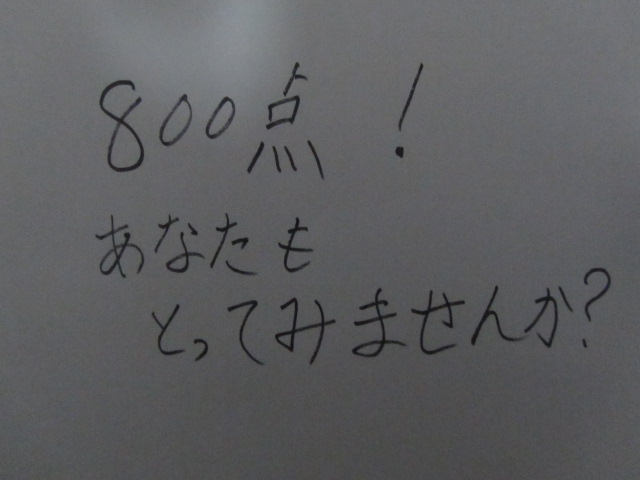 800点！
あなたも
とってみませんか?